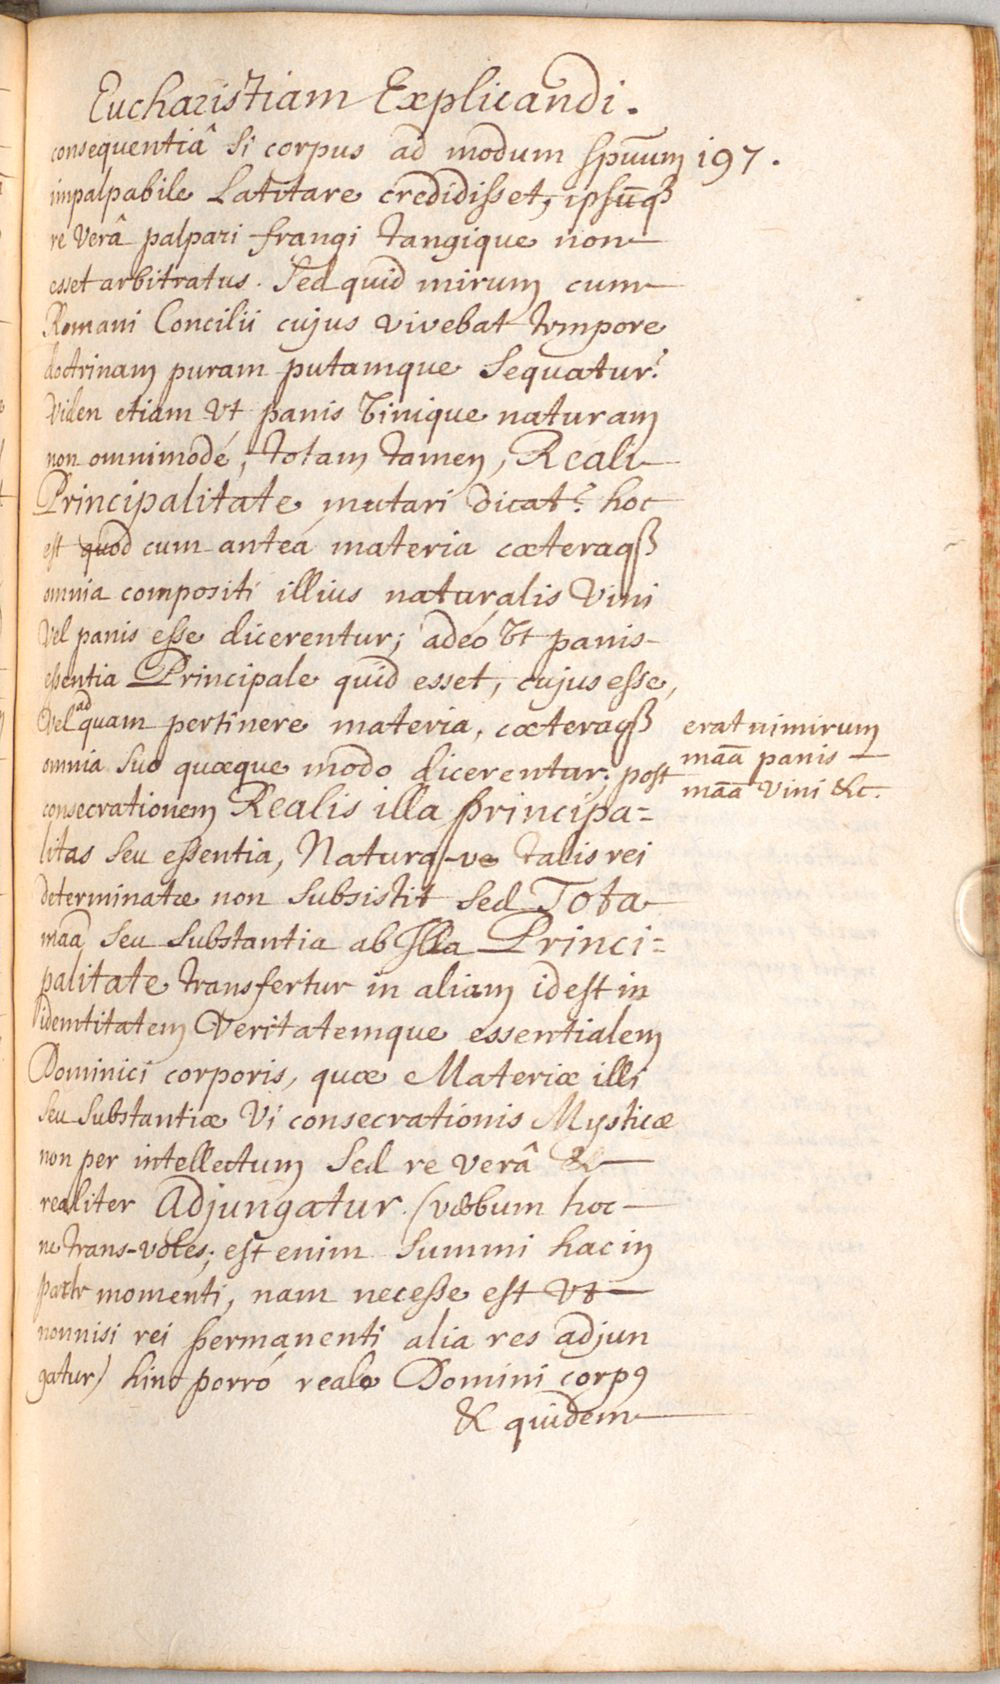 Eucharistiam Explicandi.
consequentiâ si corpus ad modum spūum 197.
impalpabile Latitare credidisset, ipsūq
re Verâ palpari frangi tangique non
esset arbitratus. Sed quid mirum cum
Romani Concilii cujus vivebat tempore
doctrinam puram putamque sequatur?
Viden etiam Vt panis Vinique naturam
non omnimodé, totam tamen, Reali
Principalitate mutari dicat? hoc
est quod cum anteá materia cæteraq
omnia compositi illius naturalis Vini
Vel panis esse dicerentur; adeó Vt panis
essentia Principale quid esset, cujus esse,
Vel ad quam pertinere materia, cæteraq
omnia suo quæque modo dicerentur. post
erat nimirum
māā panis
māā Vini &c.
consecrationem Realis illa principa=
litas seu essentia, Natura-ve talis rei
determinatæ non subsistit sed Tota
māā seu substantia ab Illa Princi=
palitate transfertur in aliam id est in
identitatem Veritatemque essentialem
Dominici corporis, quæ Materiæ illi
seu substantiæ Vi consecrationis Mysticæ
non per intellectum sed re verâ &
realiter Adjungatur. (verbum hoc
ne trans-voles; est enim summi hac in
parte momenti, nam necesse est Vt
nonnisi rei permanenti alia res adjun
gatur) hinc porró reale Domini corpꝰ
& quidem